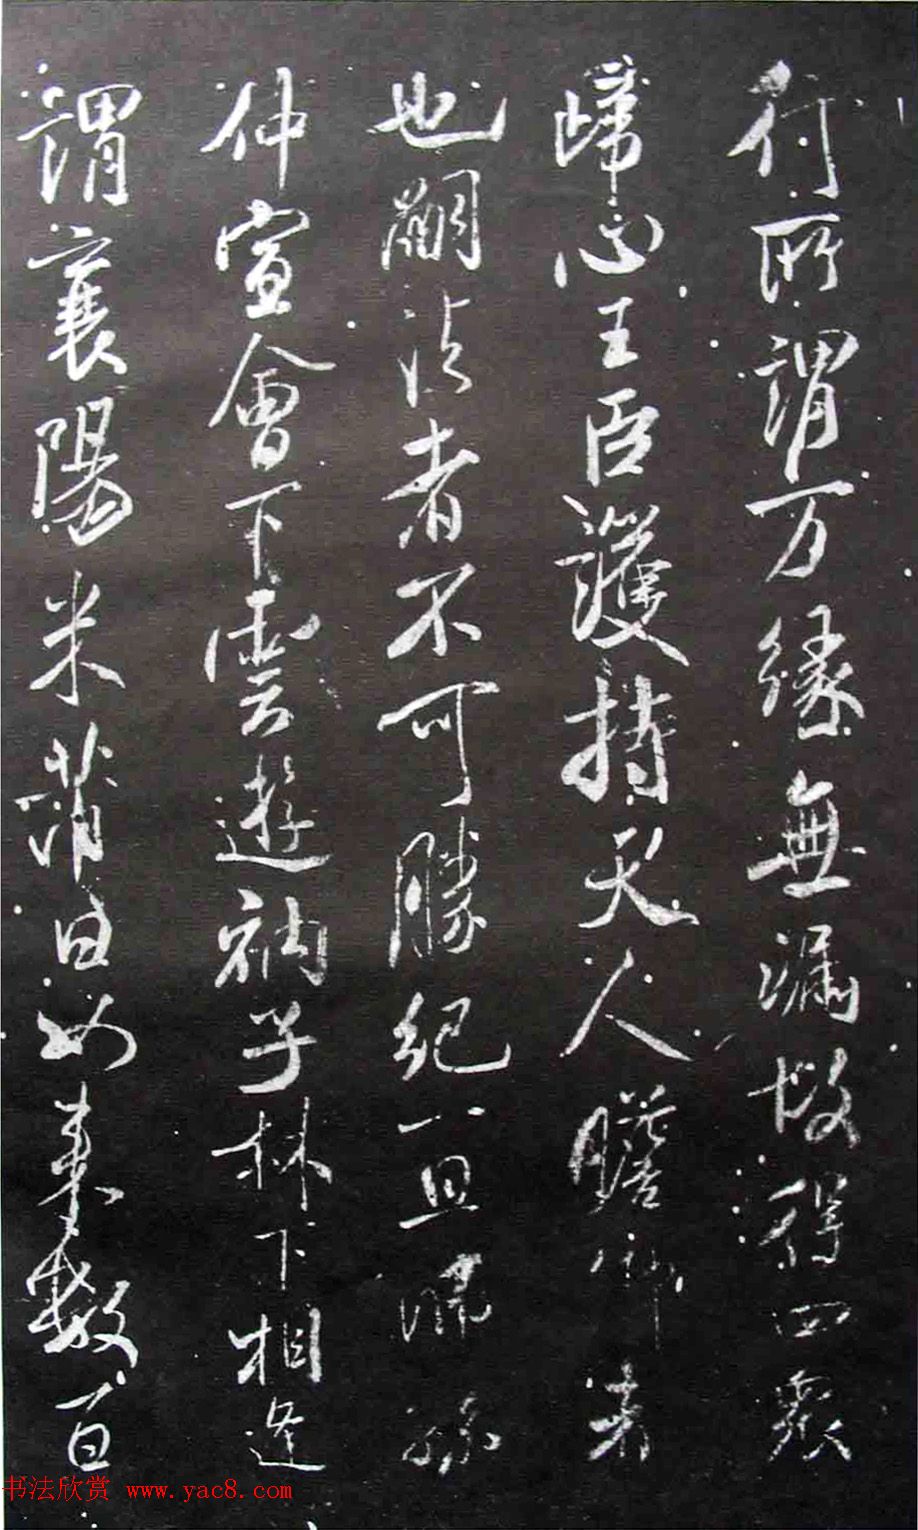 付所謂万緣無漏故得四衆
歸心王臣護持天人瞻仰者
也嗣法者不可勝紀一旦師孫
仲宣會下雲遊衲子林下相逢
謂襄陽米芾曰如來數百
书法欣赏 www.yac8.com